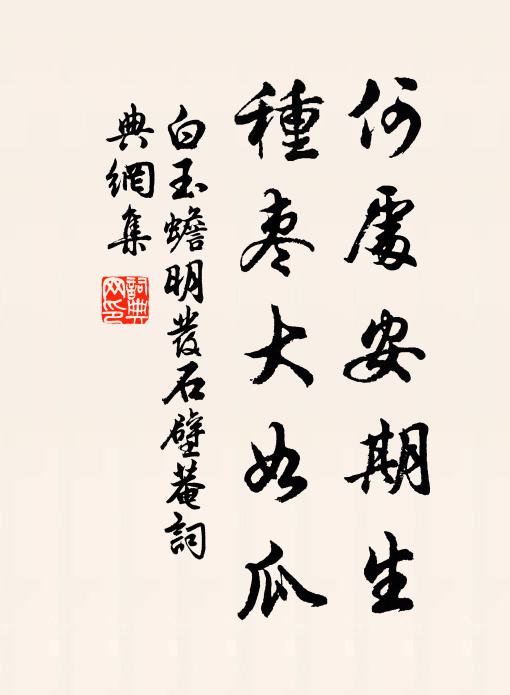 何處安期生
種棗大如瓜
白玉蟾明發石壁菴詞
典網集
詞典
网印